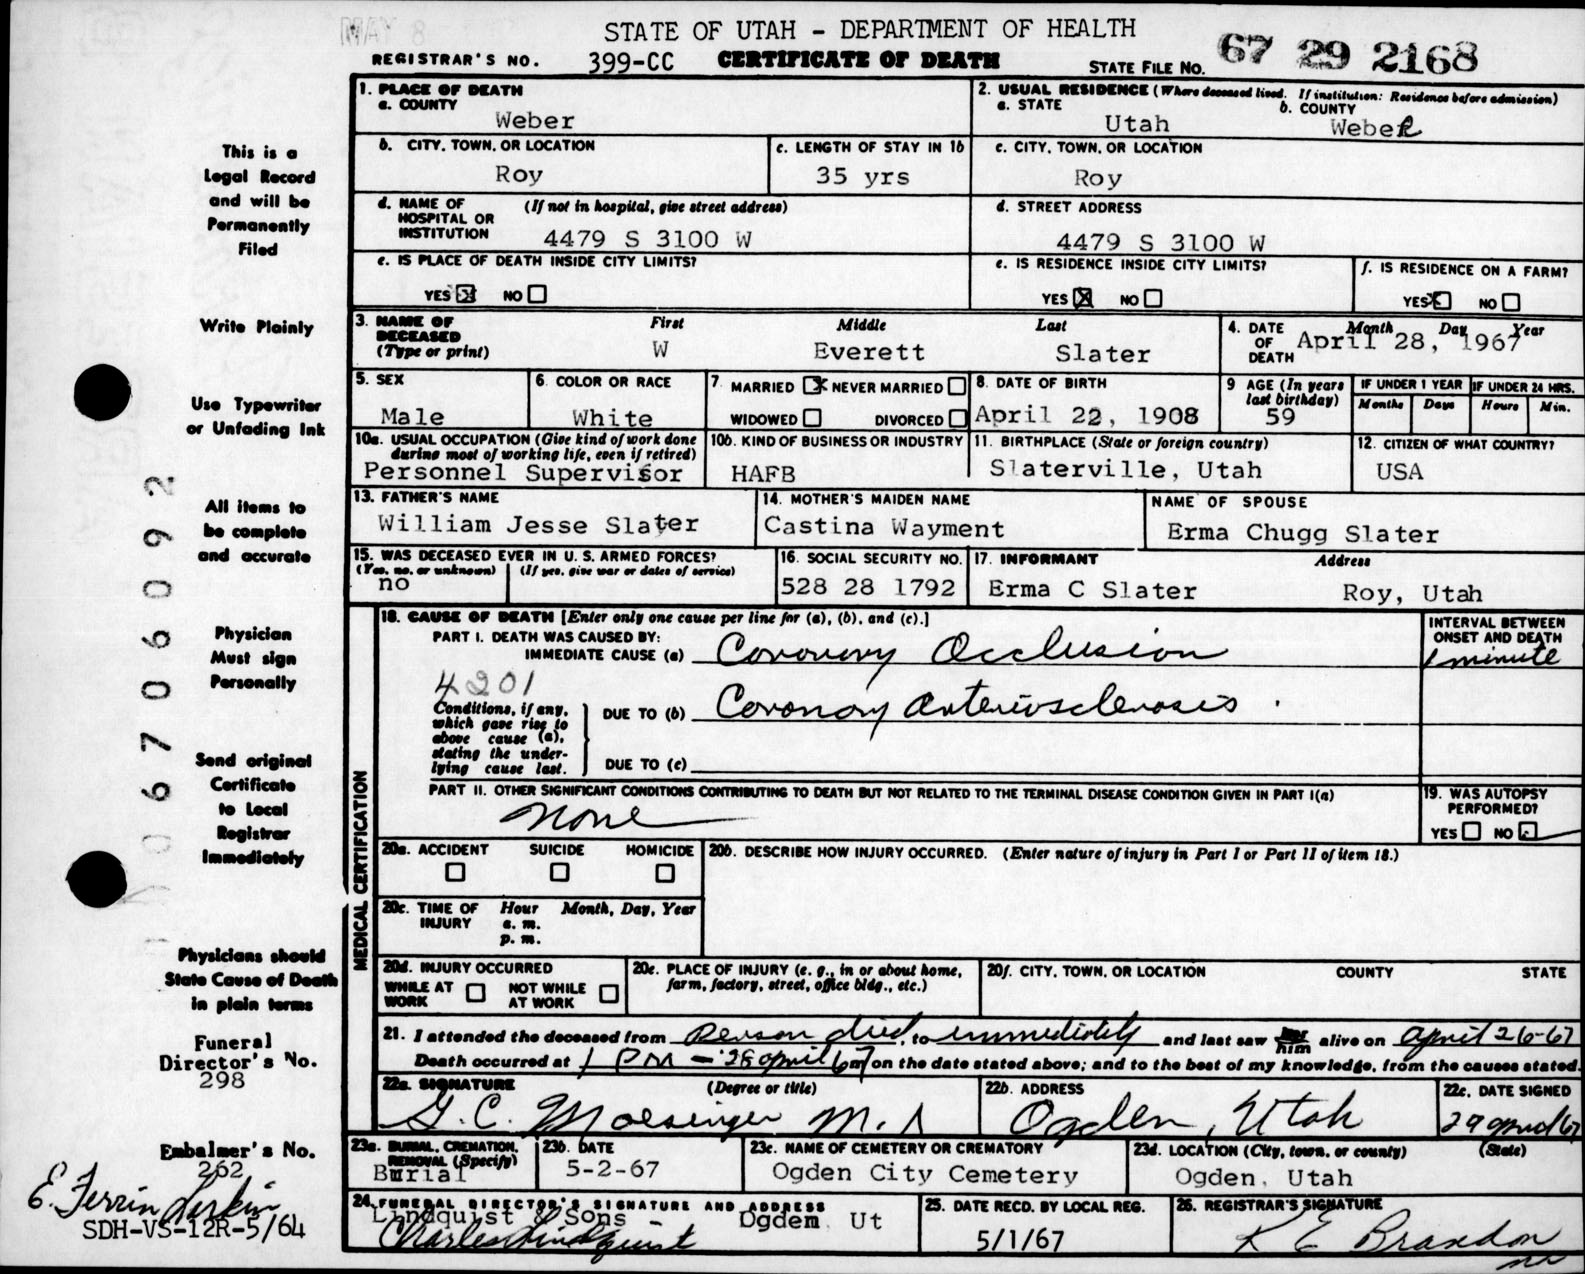 MAY 8
STATE OF UTAH - DEPARTMENT OF HEALTH
REGISTRAR'S NO. 399-CC CERTIFICATE OF DEATH STATE FILE NO. 67 29 2168
This is a
Legal Record
and will be
Permanently
Filed
Write Plainly
Use Typewriter
or Unfading Ink
All items to
be complete
and accurate
Physician
Must sign
Personally
Send original
Certificate
to Local
Registrar
Immediately
Physicians should
State Cause of Death
in plain terms
Funeral
Director's No.
298
Embalmer's No.
262
E. Ferrin Larkin
SDH-VS-12R-5/64
06706092
1. PLACE OF DEATH
a. COUNTY
Weber
2. USUAL RESIDENCE (Where deceased lived. If institution: Residence before admission)
a. STATE b. COUNTY
Utah Weber
b. CITY, TOWN, OR LOCATION
Roy
c. LENGTH OF STAY IN 1b
35 yrs
c. CITY, TOWN, OR LOCATION
Roy
d. NAME OF (If not in hospital, give street address)
HOSPITAL OR
INSTITUTION
4479 S 3100 W
d. STREET ADDRESS
4479 S 3100 W
e. IS PLACE OF DEATH INSIDE CITY LIMITS?
YES X NO
e. IS RESIDENCE INSIDE CITY LIMITS?
YES X NO
f. IS RESIDENCE ON A FARM?
YES X NO
3. NAME OF
DECEASED
(Type or print)
First Middle Last
W Everett Slater
4. DATE
OF
DEATH
Month Day Year
April 28, 1967
5. SEX
Male
6. COLOR OR RACE
White
7. MARRIED X NEVER MARRIED
WIDOWED DIVORCED
8. DATE OF BIRTH
April 22, 1908
9 AGE (In years
last birthday)
59
IF UNDER 1 YEAR IF UNDER 24 HRS.
Months Days Hours Min.
10a. USUAL OCCUPATION (Give kind of work done
during most of working life, even if retired)
Personnel Supervisor
10b. KIND OF BUSINESS OR INDUSTRY
HAFB
11. BIRTHPLACE (State or foreign country)
Slaterville, Utah
12. CITIZEN OF WHAT COUNTRY?
USA
13. FATHER'S NAME
William Jesse Slater
14. MOTHER'S MAIDEN NAME
Castina Wayment
NAME OF SPOUSE
Erma Chugg Slater
15. WAS DECEASED EVER IN U. S. ARMED FORCES?
(Yes, no, or unknown) (If yes, give war or dates of service)
no
16. SOCIAL SECURITY NO.
528 28 1792
17. INFORMANT Address
Erma C Slater Roy, Utah
MEDICAL CERTIFICATION
18. CAUSE OF DEATH [Enter only one cause per line for (a), (b), and (c).]
PART I. DEATH WAS CAUSED BY:
IMMEDIATE CAUSE (a) Coronary Occlusion
INTERVAL BETWEEN
ONSET AND DEATH
1 minute
4201
Conditions, if any,
which gave rise to
above cause (a),
stating the under-
lying cause last.
DUE TO (b) Coronary arteriosclerosis.
DUE TO (c)
PART II. OTHER SIGNIFICANT CONDITIONS CONTRIBUTING TO DEATH BUT NOT RELATED TO THE TERMINAL DISEASE CONDITION GIVEN IN PART I(a)
none
19. WAS AUTOPSY
PERFORMED?
YES NO
20a. ACCIDENT SUICIDE HOMICIDE
20b. DESCRIBE HOW INJURY OCCURRED. (Enter nature of injury in Part I or Part II of item 18.)
20c. TIME OF Hour Month, Day, Year
INJURY a. m.
p. m.
20d. INJURY OCCURRED
WHILE AT NOT WHILE
WORK AT WORK
20e. PLACE OF INJURY (e. g., in or about home,
farm, factory, street, office bldg., etc.)
20f. CITY, TOWN, OR LOCATION COUNTY STATE
21. I attended the deceased from Person died, to immediately and last saw her him alive on april 26-67
Death occurred at 1 PM - 28 april 67 on the date stated above; and to the best of my knowledge, from the causes stated.
22a. SIGNATURE (Degree or title)
G. C. Moesinger M. D
22b. ADDRESS
Ogden, Utah
22c. DATE SIGNED
29 april 67
23a. BURIAL, CREMATION,
REMOVAL (Specify)
Burial
23b. DATE
5-2-67
23c. NAME OF CEMETERY OR CREMATORY
Ogden City Cemetery
23d. LOCATION (City, town, or county) (State)
Ogden, Utah
24. FUNERAL DIRECTOR'S SIGNATURE AND ADDRESS
Lindquist & Sons - Ogdem Ut
Charles Lindquist
25. DATE RECD. BY LOCAL REG.
5/1/67
26. REGISTRAR'S SIGNATURE
K E Brandon